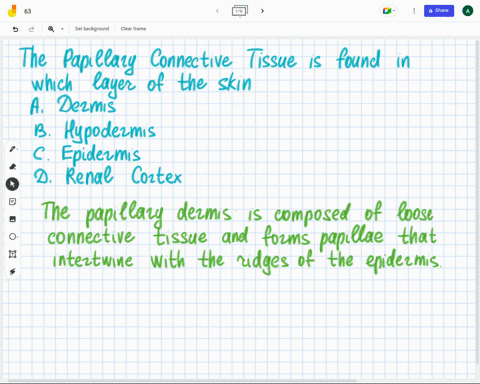 63
1/1
Share
A
Set background
Clear frame
The Papillary Connective Tissue is found in
which layer of the skin
A. Dermis
B. Hypodermis
C. Epidermis
D. Renal Cortex
The papillary dermis is composed of loose
connective tissue and forms papillae that
intertwine with the ridges of the epidermis.